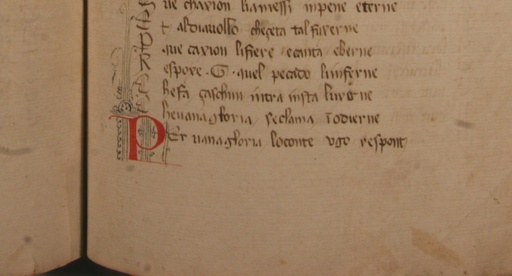 ue charion hamessi inpene eterne
t aldiauolho cheçeta tal farerne
que carion lifiere ecanta eberne
espore · G · quel pecado linferne
hesa çaschun intra insta luiçrne
henanagloria seclama iodierne
PEr uana gloria loconte ugo respont